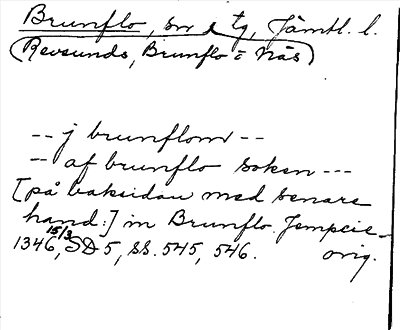 Brunflo, sn o tg, Jämtl. l.
(Revsunds, Brunflo o Näs)
-- j brunflom --
-- af brunflo soken ---
[på baksidan med senare
hand:] in Brunflo Jempcie
1346 15/3, SD 5, ss. 545, 546. orig.